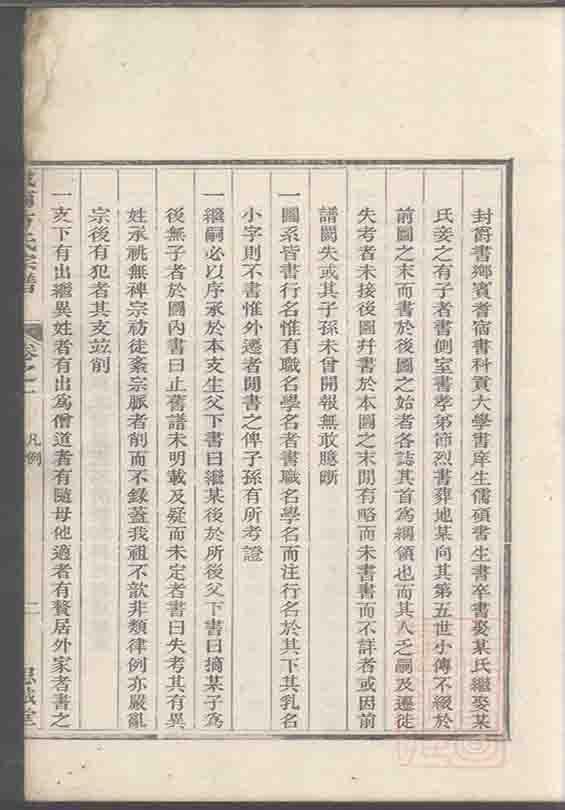 封爵書鄉賓耆宿書科貢大學書庠生儒碩書生書卒書娶某氏繼娶某
氏妾之有子者書側室書孝弟節烈書葬地某向其第五世小傳不綴於
前圖之末而書於後圖之始者各誌其首為綱領也而其人之嗣及遷徙
失考者未接後圖幷書於本圖之末閒有略而未書書而不詳者或因前
譜闕失或其子孫未曾開報無敢臆斷
一圖系皆書行名惟有職名學名者書職名學名而注行名於其下其乳名
小字則不書惟外遷者閒書之俾子孫有所考證
一繼嗣必以序承於本支生父下書曰繼某後於所後父下書曰摘某子為
後無子者於圖內書曰止舊譜未明載及疑而未定者書曰失考其有異
姓承祧無裨宗祊徒紊宗脈者削而不錄蓋我祖不歆非類律例亦嚴亂
宗後有犯者其支竝削
一支下有出繼異姓者有出為僧道者有隨母他適者有贅居外家者書之
方氏宗譜 卷之一 凡例 二